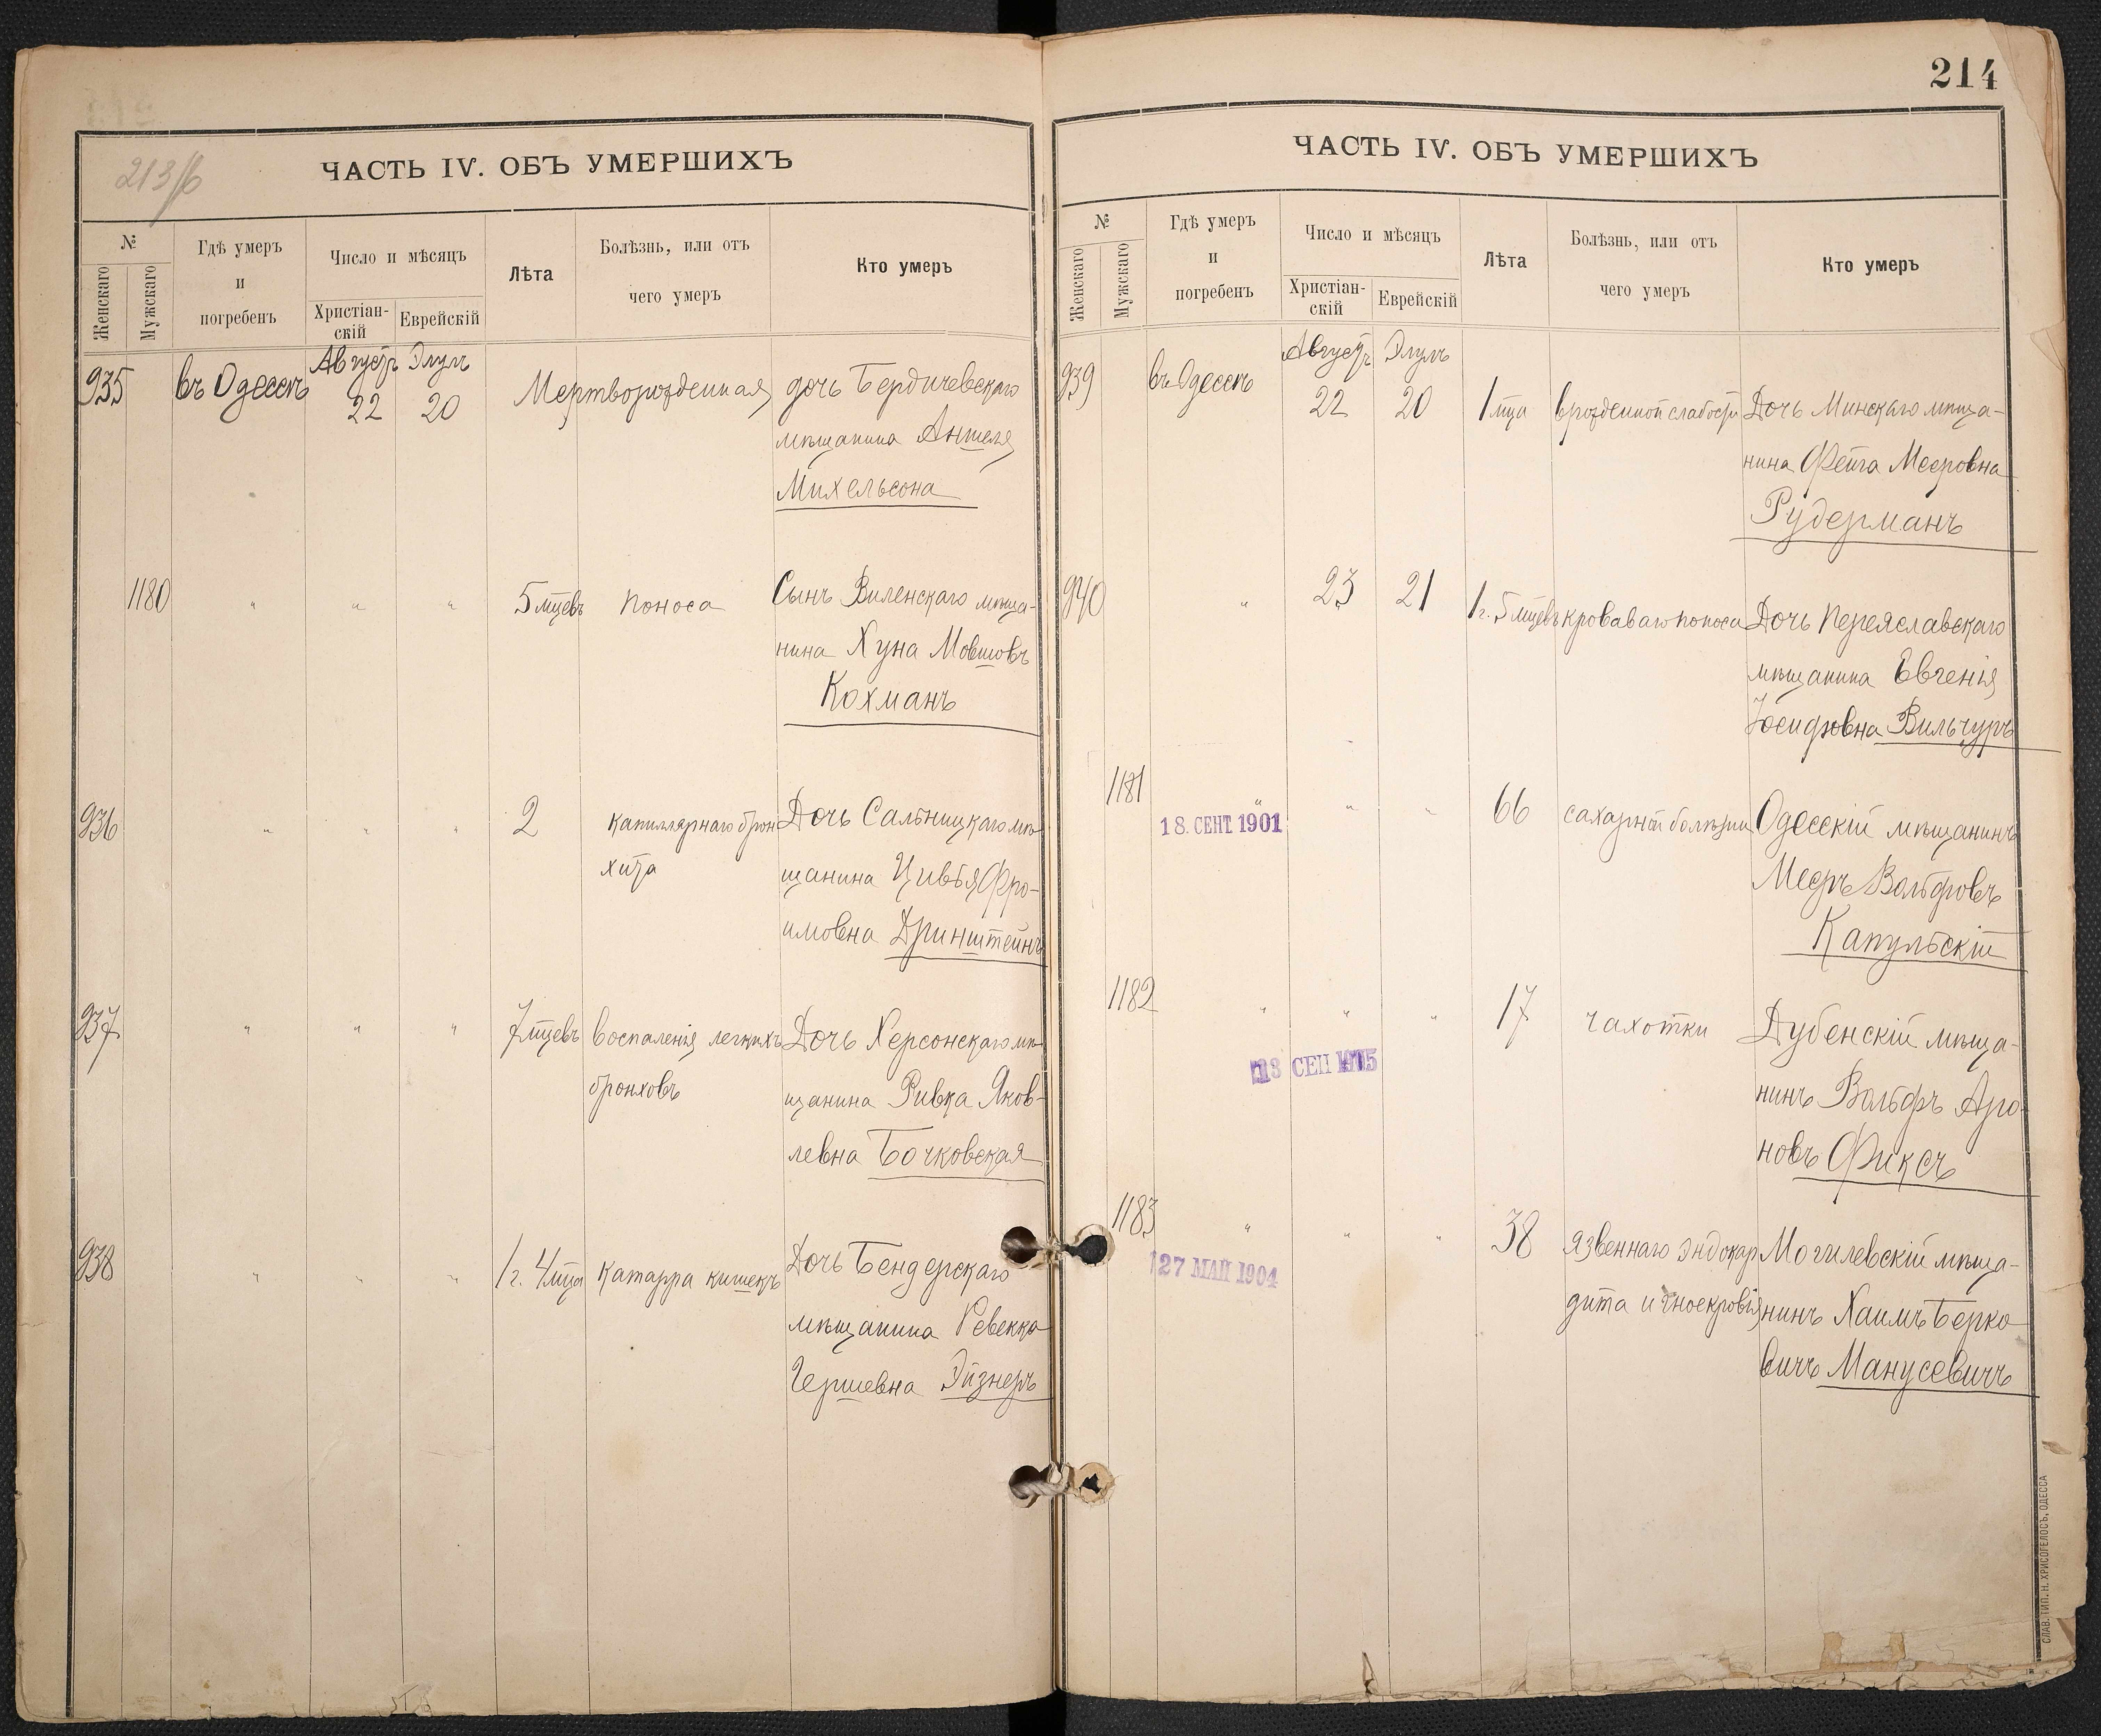 213/б
ЧАСТЬ IV. ОБЪ УМЕРШИХЪ
№
Женскаго
Мужскаго
Гдѣ умеръ
и
погребенъ
Число и мѣсяцъ
Христіан-
скій
Еврейскій
Лѣта
Болѣзнь, или отъ
чего умеръ
Кто умеръ
935 въ Одессѣ Августъ 22 Элулъ 20 Мертворожденная дочь Бердичевскаго
мѣщанина Аншеля
Михельсона
1180 " " " 5 мцевъ поноса Сынъ Виленскаго мѣща-
нина Хуна Мовшовъ
Кохманъ
936 " " " 2 капиллярнаго брон Дочь Сальницкаго мѣ
хита щанина Цивья Фро-
имовна Дринштейнъ
937 " " " 7 мцевъ воспаленія легкихъ Дочь Херсонскаго мѣ
бронховъ щанина Ривка Яков-
левна Бочковская
938 " " " 1 г. 4 мца катарра кишекъ Дочь Бендерскаго
мѣщанина Ревекка
Гершевна Эйзнеръ
214
ЧАСТЬ IV. ОБЪ УМЕРШИХЪ
№
Женскаго
Мужскаго
Гдѣ умеръ
и
погребенъ
Число и мѣсяцъ
Христіан-
скій
Еврейскій
Лѣта
Болѣзнь, или отъ
чего умеръ
Кто умеръ
939 въ Одессѣ Августъ 22 Элулъ 20 1 мца врожденной слабости Дочь Минскаго мѣща-
нина Фейга Мееровна
Рудерманъ
940 " 23 21 1 г. 5 мцевъ кроваваго поноса Дочь Переяславскаго
мѣщанина Евгенія
Іосифовна Вильчуръ
1181 " " " 66 сахарной болѣзни Одесскій мѣщанинъ
18. СЕНТ. 1901
Мееръ Вольфовъ
Капульскій
1182 " " " 17 чахотки Дубенскій мѣща-
СЕН
нинъ Вольфъ Аро-
новъ Фиксъ
1183 " " " 38 язвеннаго эндокар Могилевскій мѣща-
27 МАЙ 1904
дита и гноекровія нинъ Хаимъ Берко
вичъ Манусевичъ
СЛАВ. ТИП. Н. ХРИСОГЕЛОСЪ, ОДЕССА